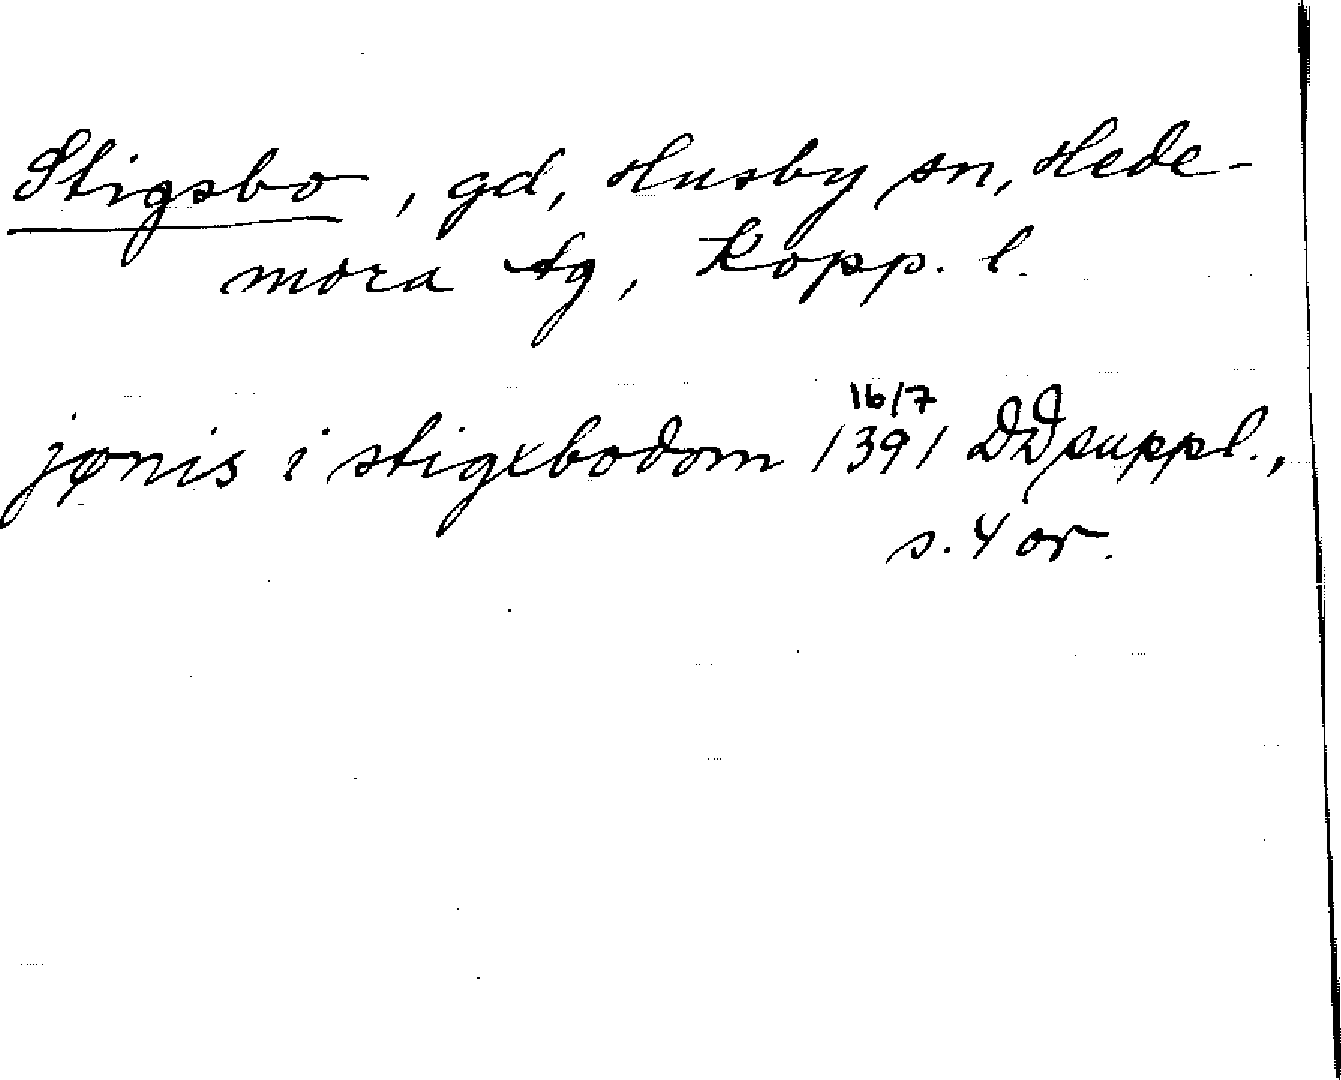 Stigsbo, gd, Husby sn, Hede-
mora tg, Kopp. l.
16/7
jønis i stigxbodom 1391 DDsuppl.,
s. 4 or.